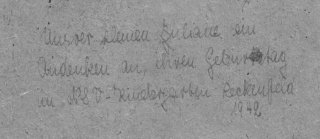 Unsrer kleinen Juliane ein
Andenken an, ihren Geburtstag
im NSV-Kindergarten
1942